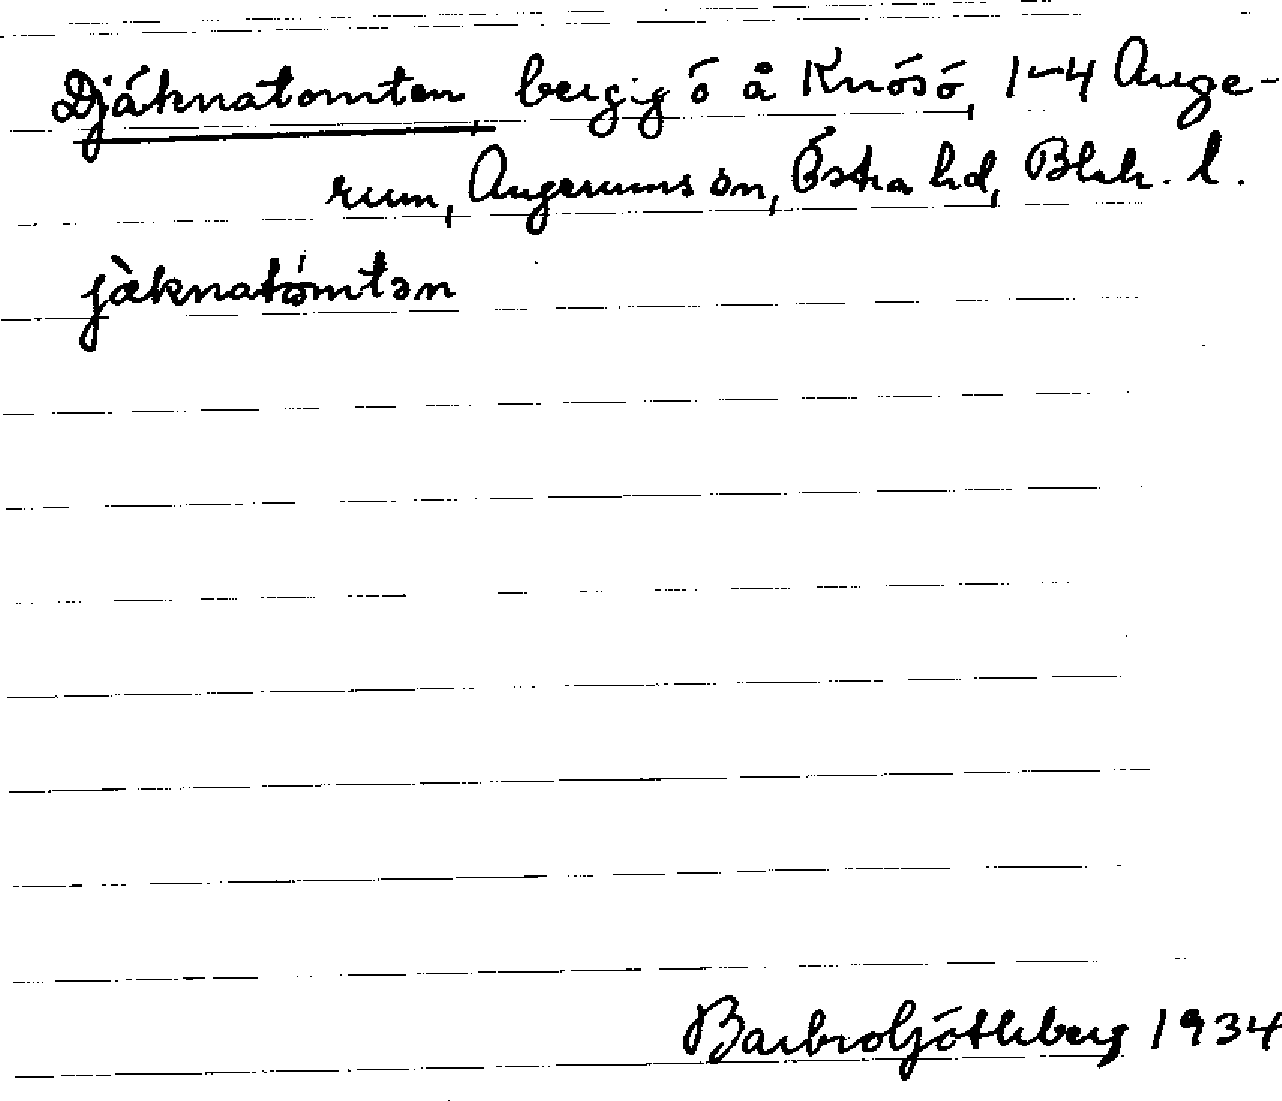 Djäknatomten, bergig ö å Knösö, 1-4 Auge-
rum, Augerums sn, Östra hd, Blek. l.
jàknatómtən
Barbro Göthberg 1934